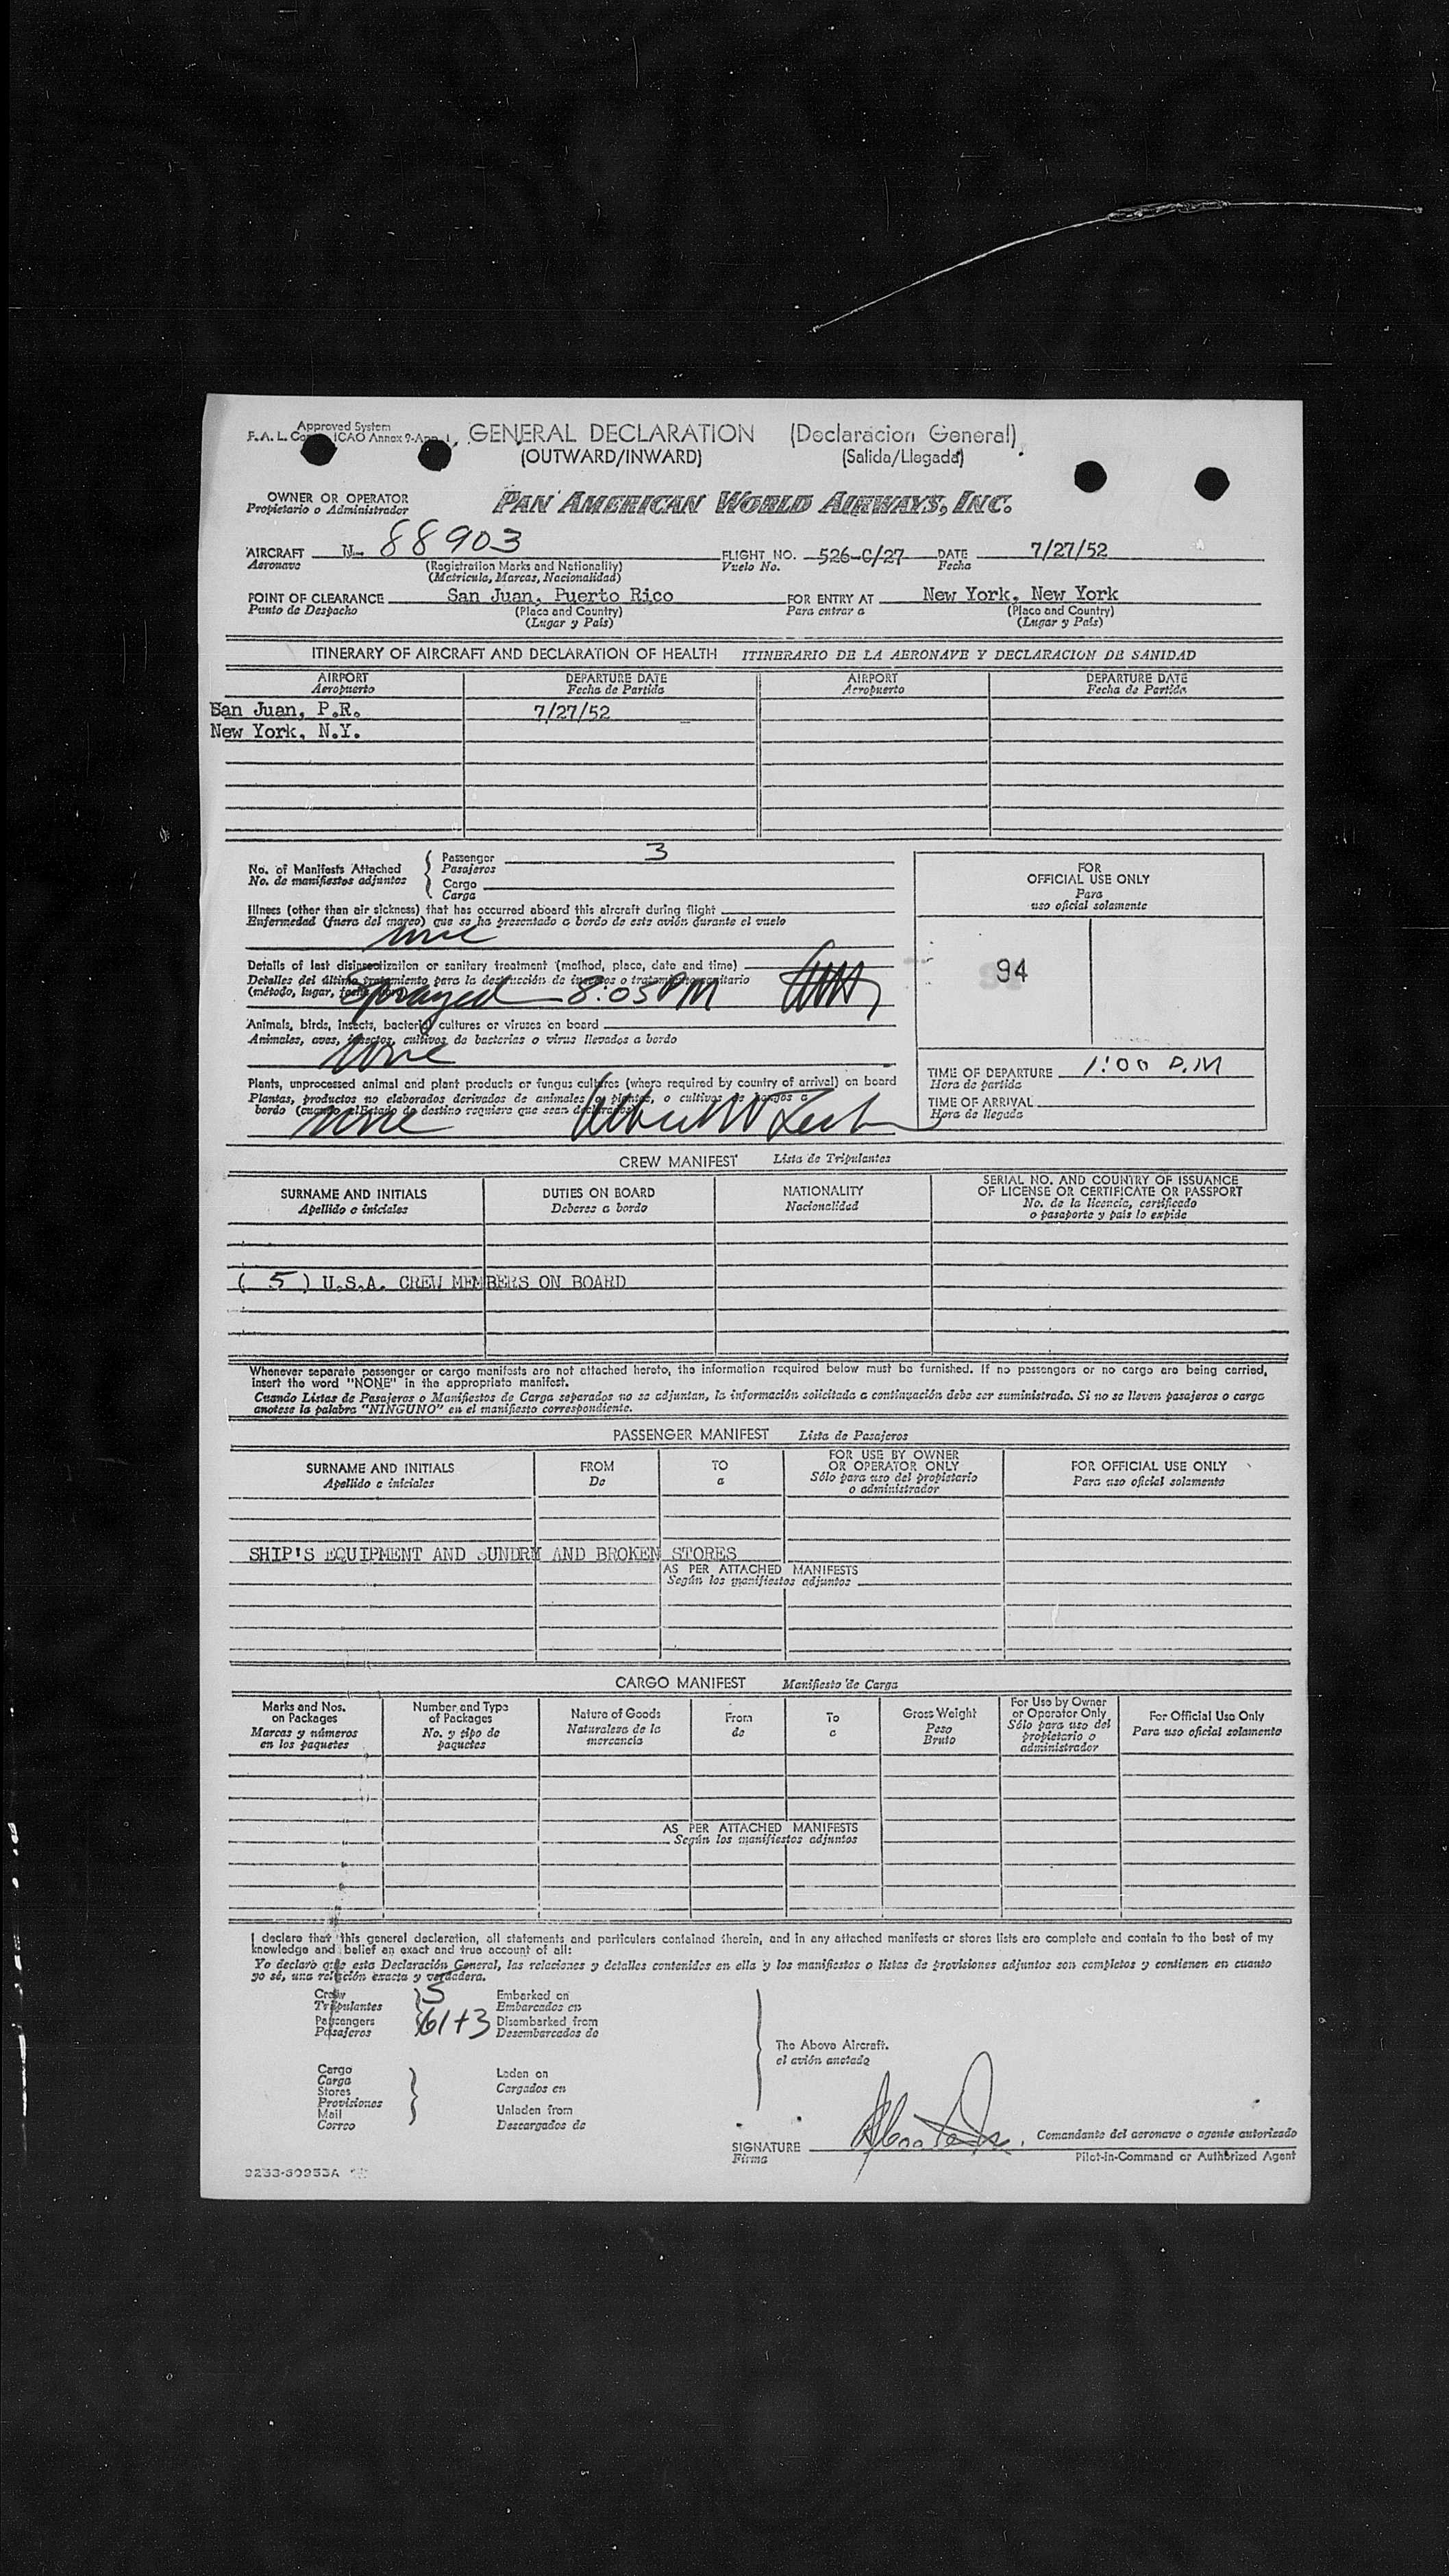 Approved System
F. A. L. ICAO Annex 9-App. 1. GENERAL DECLARATION (Declaracion General)
(OUTWARD/INWARD) (Salida/Llegada)
OWNER OR OPERATOR PAN AMERICAN WORLD AIRWAYS, INC.
Propietario o Administrador
AIRCRAFT N- 88903 FLIGHT NO. 526-C/27 DATE 7/27/52
Aeronave (Registration Marks and Nationality) Vuelo No. Fecha
(Matricula, Marcas, Nacionalidad)
POINT OF CLEARANCE San Juan, Puerto Rico FOR ENTRY AT New York, New York
Punto de Despacho (Place and Country) Para entrar a (Place and Country)
(Lugar y País) (Lugar y País)
ITINERARY OF AIRCRAFT AND DECLARATION OF HEALTH ITINERARIO DE LA AERONAVE Y DECLARACION DE SANIDAD
AIRPORT DEPARTURE DATE AIRPORT DEPARTURE DATE
Aeropuerto Fecha de Partida Aeropuerto Fecha de Partida
San Juan, P.R. 7/27/52
New York, N.Y.
No. of Manifests Attached { Passenger 3
No. de manifiestos adjuntos Pasajeros
Cargo
Carga
FOR
OFFICIAL USE ONLY
Para
uso oficial solamente
Illness (other than air sickness) that has occurred aboard this aircraft during flight
Enfermedad (fuera del mareo) que se ha presentado a bordo de este avión durante el vuelo
none
Details of last disinsectization or sanitary treatment (method, place, date and time)
Detalles del último tratamiento para la destrucción de insectos o tratamiento sanitario
(método, lugar, fecha Sprayed - 8:05 PM
94
Animals, birds, insects, bacterial cultures or viruses on board
Animales, aves, insectos, cultivos de bacterias o virus llevados a bordo
None
TIME OF DEPARTURE 1:00 P.M
Hora de partida
TIME OF ARRIVAL
Hora de llegada
Plants, unprocessed animal and plant products or fungus cultures (where required by country of arrival) on board
Plantas, productos no elaborados derivados de animales o plantas, o cultivos de hongos a
bordo (cuando el Estado de destino requiera que sean declarados)
none
CREW MANIFEST Lista de Tripulantes
SURNAME AND INITIALS DUTIES ON BOARD NATIONALITY SERIAL NO. AND COUNTRY OF ISSUANCE
OF LICENSE OR CERTIFICATE OR PASSPORT
Apellido e iniciales Deberes a bordo Nacionalidad No. de la licencia, certificado
o pasaporte y país lo expide
( 5 ) U.S.A. CREW MEMBERS ON BOARD
Whenever separate passenger or cargo manifests are not attached hereto, the information required below must be furnished. If no passengers or no cargo are being carried,
insert the word "NONE" in the appropriate manifest.
Cuando Listas de Pasajeros o Manifiestos de Carga separados no se adjuntan, la información solicitada a continuación debe ser suministrada. Si no se lleven pasajeros o carga
anotese la palabra "NINGUNO" en el manifiesto correspondiente.
PASSENGER MANIFEST Lista de Pasajeros
SURNAME AND INITIALS FROM TO FOR USE BY OWNER
OR OPERATOR ONLY FOR OFFICIAL USE ONLY
Apellido e iniciales De a Sólo para uso del propietario
o administrador Para uso oficial solamente
SHIP'S EQUIPMENT AND SUNDRY AND BROKEN STORES
AS PER ATTACHED MANIFESTS
Según los manifiestos adjuntos
CARGO MANIFEST Manifiesto de Carga
Marks and Nos.
on Packages
Marcas y números
en los paquetes
Number and Type
of Packages
No. y tipo de
paquetes
Nature of Goods
Naturalesa de la
mercancia
From
de
To
a
Gross Weight
Peso
Bruto
For Use by Owner
or Operator Only
Sólo para uso del
propietario o
administrador
For Official Use Only
Para uso oficial solamente
AS PER ATTACHED MANIFESTS
Según los manifiestos adjuntos
I declare that this general declaration, all statements and particulars contained therein, and in any attached manifests or stores lists are complete and contain to the best of my
knowledge and belief an exact and true account of all:
Yo declaro que esta Declaración General, las relaciones y detalles contenidos en ella y los manifiestos o listas de provisiones adjuntos son completos y contienen en cuanto
yo sé, una relación exacta y verdadera.
Crew 5 Embarked on
Tripulantes Embarcados en
Passengers 61+3 Disembarked from
Pasajeros Desembarcados de
The Above Aircraft.
el avión anotado
Cargo
Carga
Stores
Provisiones
Mail
Correo
Laden on
Cargados en
Unladen from
Descargados de
SIGNATURE Comandante del aeronave o agente autorizado
Firma Pilot-in-Command or Authorized Agent